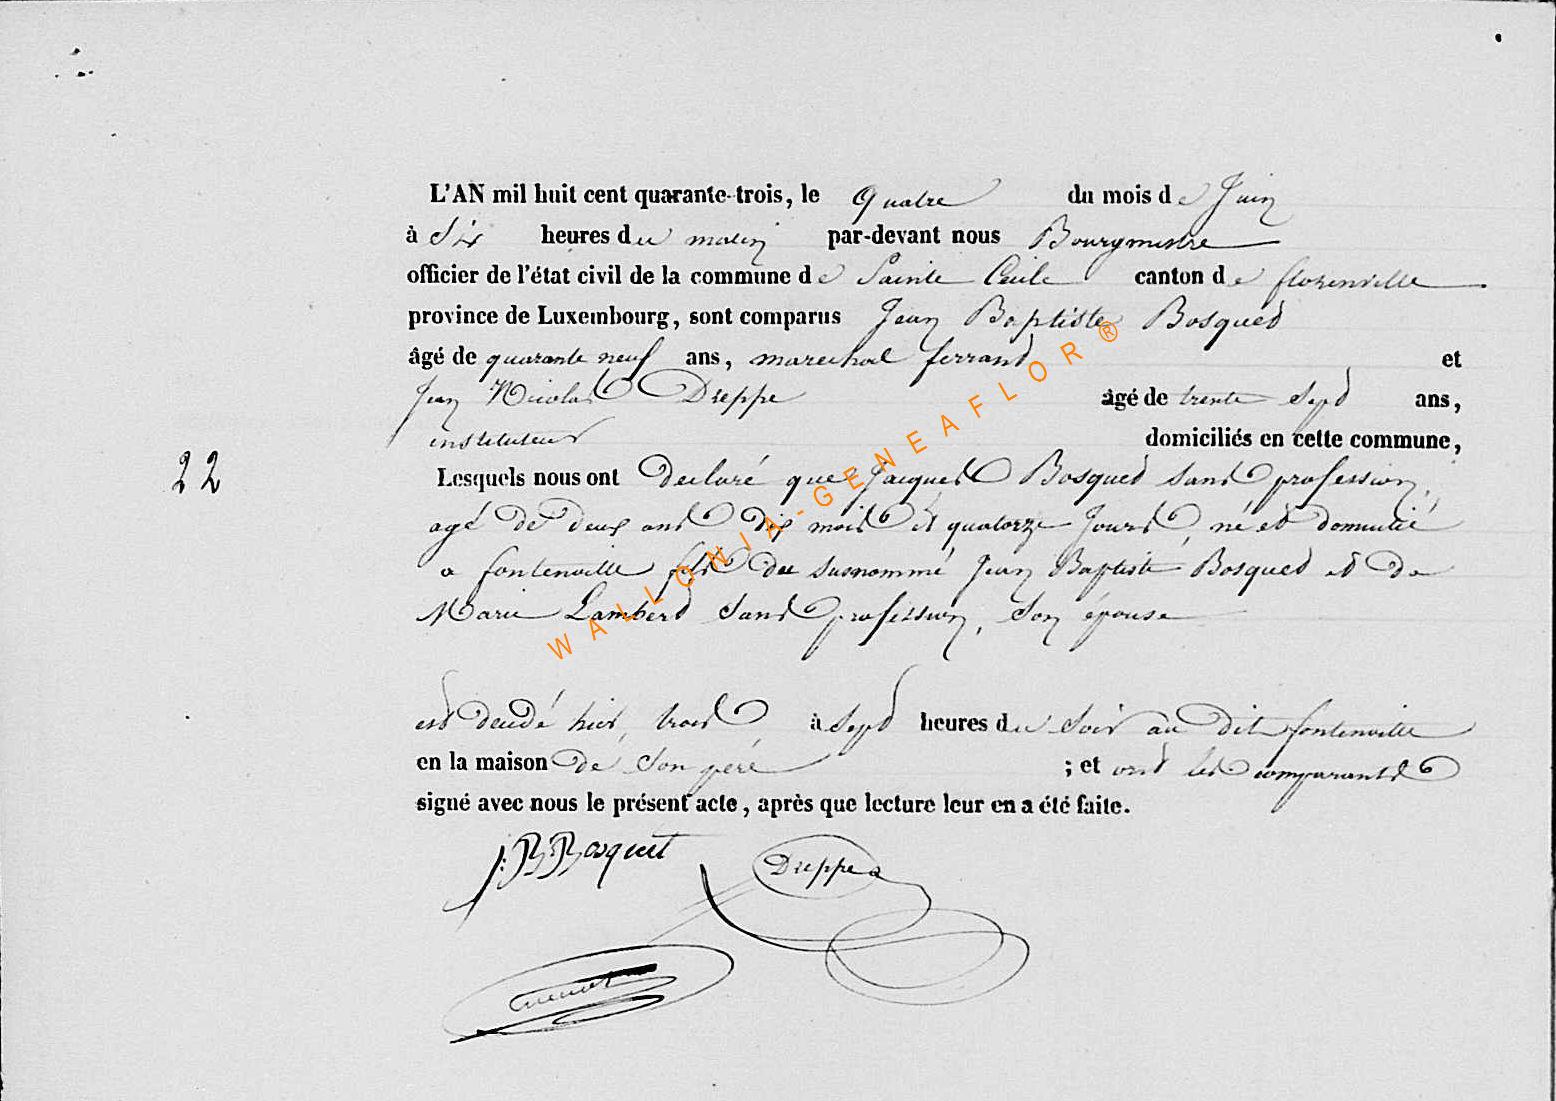 L'AN mil huit cent quarante-trois, le quatre du mois de Juin
à Six heures du matin par-devant nous Bourgmestre
officier de l'état civil de la commune de Sainte Cecile canton de florenville
province de Luxembourg, sont comparus Jean Baptiste Bosqued
âgé de quarante neuf ans, marechal ferrand et
Jean Nicolas Dreppe âgé de trente Sept ans,
instituteur domiciliés en cette commune,
22
Lesquels nous ont declaré que Jacques Bosqued sans profession,
agé de deux ans dix mois et quatorze Jours, né et domicilié
a fontenville fils du susnommé Jean Baptiste Bosqued et de
Marie Lamberd sans profession, son épouse
est decedé hier, trois, à Sept heures du Soir au dit fontenville
en la maison de Son père ; et ont les comparants
signé avec nous le présent acte, après que lecture leur en a été faite.
J: B: Bosquet Dreppe
WALLONIA-GENEAFLOR®